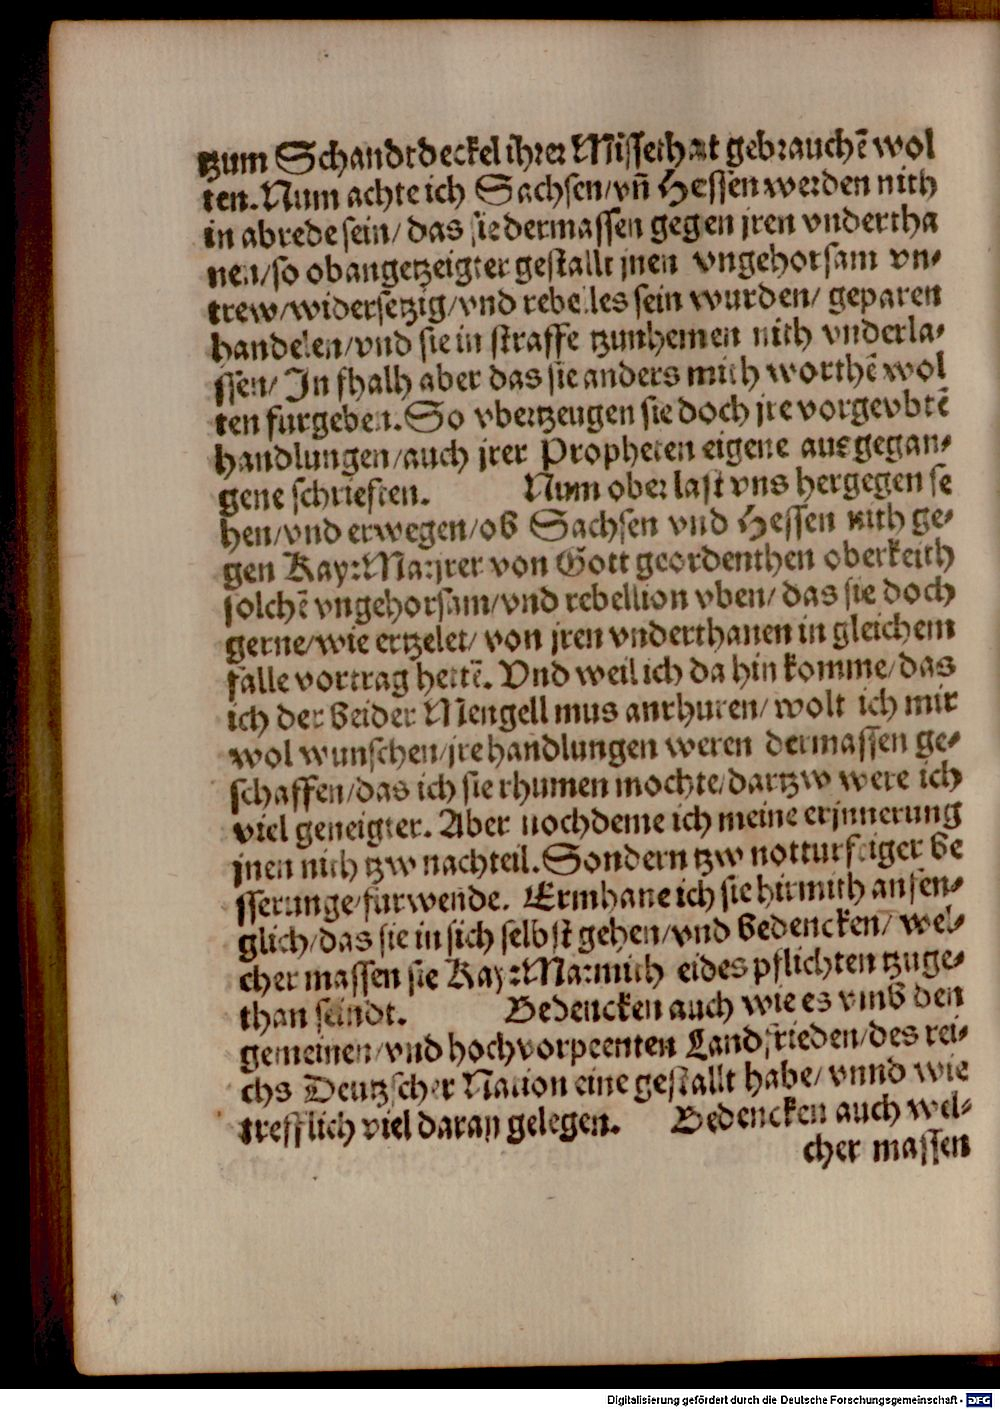 tzum Schandtdeckel ihrer Missethat gebrauchē wol
ten. Num achte ich Sachsen/ vñ Hessen werden nith
in abrede sein/ das sie dermassen gegen jren vndertha
nen/ so obangetzeigter gestallt jnen vngehorsam vn⸗
trew/ widersetzig/ vnd rebelles sein wurden/ geparen
handelen/ vnd sie in straffe tzunhemen nith vnderla⸗
ssen/ In fhalh aber das sie anders mith worthē wol
ten furgeben. So vbertzeugen sie doch jre vorgevbtē
handlungen/ auch jrer Propheten eigene ausgegan⸗
gene schrieften. Num ober last vns hergegen se
hen/ vnd erwegen/ ob Sachsen vnd Hessen nith ge⸗
gen Kay: Ma: jrer von Gott geordenthen oberkeith
solchē vngehorsam/ vnd rebellion vben/ das sie doch
gerne/ wie ertzelet/ von jren vnderthanen in gleichem
falle vortrag hettē. Vnd weil ich da hin komme/ das
ich der beider Mengell mus anrhuren/ wolt ich mir
wol wunschen/ jre handlungen weren dermassen ge⸗
schaffen/ das ich sie rhumen mochte/ dartzw were ich
viel geneigter. Aber nochdeme ich meine erjnnerung
jnen nith tzw nachteil. Sondern tzw notturftiger be
sserunge/ furwende. Ermhane ich sie hirmith anfen⸗
glich/ das sie in sich selbst gehen/ vnd bedencken/ wel⸗
cher massen sie Kay: Ma: mith eides pflichten tzuge⸗
than seindt. Bedencken auch wie es vmb den
gemeinen/ vnd hochvorpeenten Landfrieden/ des rei⸗
chs Deutzscher Nation eine gestallt habe/ vnnd wie
trefflich viel daran gelegen. Bedencken auch wel⸗
cher massen
Digitalisierung gefördert durch die Deutsche Forschungsgemeinschaft - DFG